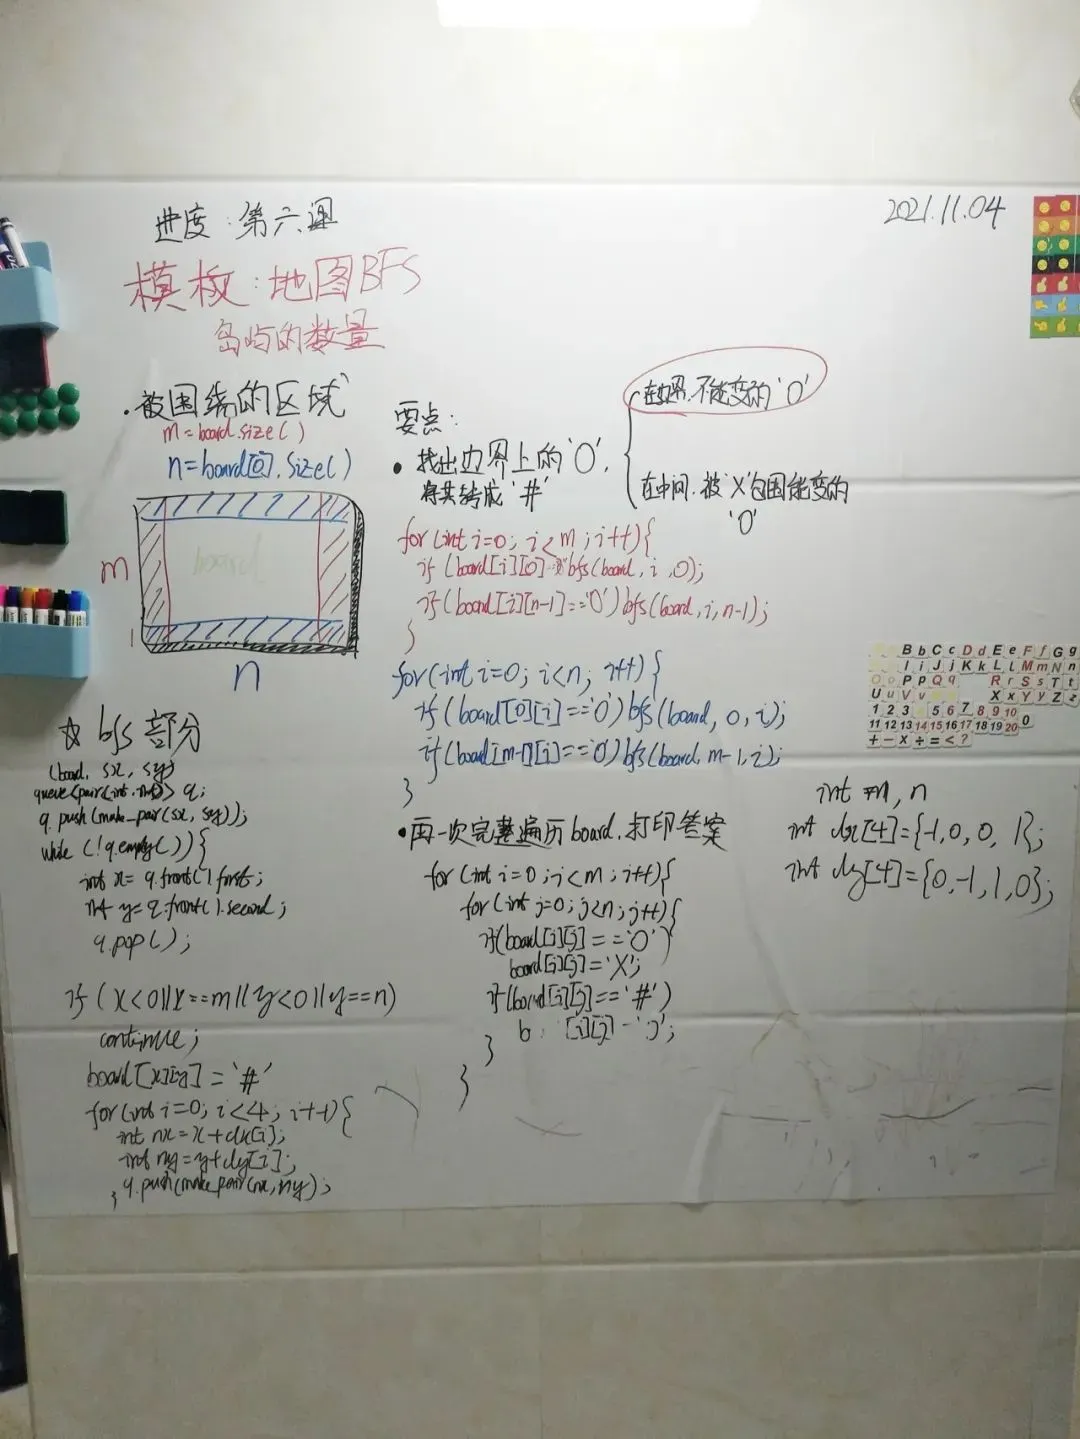 进度:第六课
2021.11.04
模板:地图BFS
岛屿的数量
·被围绕的区域
m=board.size()
n=board[0].size()
board
m
n
要点:
·找出边界上的'O',
将其转成'#'
在边界,不能变的'O'
在中间,被'X'包围能变的
'O'
for(int i=0; i<m; i++){
if(board[i][0] bfs(board, i, 0);
if(board[i][n-1]=='O') bfs(board, i, n-1);
}
for(int i=0; i<n; i++){
if(board[0][i]=='O') bfs(board, 0, i);
if(board[m-1][i]=='O') bfs(board, m-1, i);
}
·再一次完整遍历board,打印答案
for(int i=0; i<m; i++){
for(int j=0; j<n; j++){
if(board[i][j]=='O')
board[i][j]='X';
if(board[i][j]=='#')
b [i][j]
}
}
☆ bfs部分
(board, sx, sy)
queue<pair<int, int>> q;
q.push(make_pair(sx, sy));
while(!q.empty()){
int x=q.front().first;
int y=q.front().second;
q.pop();
if(x<0||x==m||y<0||y==n)
continue;
board[x][y]='#'
for(int i=0; i<4; i++){
int nx=x+dx[i];
int ny=y+dy[i];
} q.push(make_pair(nx, ny);
int m, n
int dx[4]={-1,0,0,1};
int dy[4]={0,-1,1,0};
B b C c D d E e F f G g
I i J j K k L L M m N n
O o P p Q q R r S s T t
U u V v X x Y y Z z
1 2 3 5 6 7 8 9 10
11 12 13 14 15 16 17 18 19 20 0
+ - × ÷ = < ?